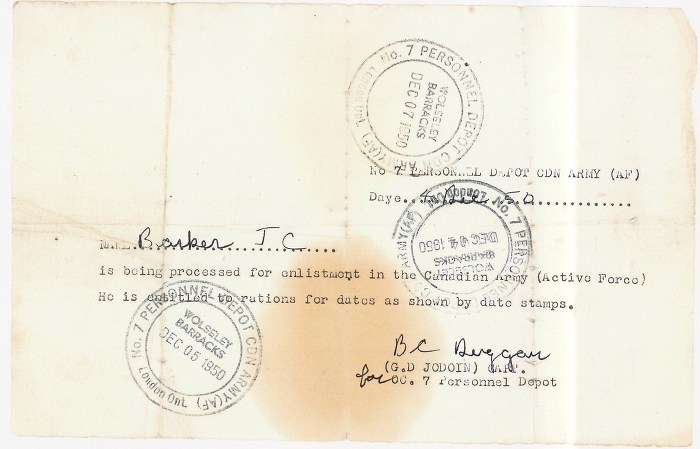 No. 7 PERSONNEL DEPOT CDN ARMY(AF) London Ont.
WOLSELEY
BARRACKS
DEC 07 1950
No 7 PERSONNEL DEPOT CDN ARMY (AF)
Daye.. Dec 50............
No. 7 PERSONNEL ARMY(AF) London Ont.
DEC 04 1950
WOLSELEY
BARRACKS
Barker J C....
is being processed for enlistment in the Canadian Army (Active Force)
He is entitled to rations for dates as shown by date stamps.
No. 7 PERSONNEL DEPOT CDN ARMY(AF) London Ont.
WOLSELEY
BARRACKS
DEC 05 1950
B C Duggan
(G.D JODOIN) CAPT.
for OC. 7 Personnel Depot